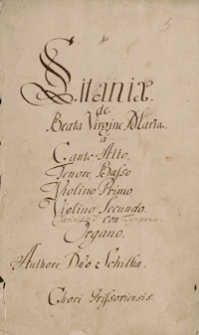 5
Litaniæ.
de
Beata Virgine Maria.
a
Canto Alto,
Tenore, Basso
Violino Primo,
Violino Secundo,
con
Organo.
Authore Dno Schilha.
Chori